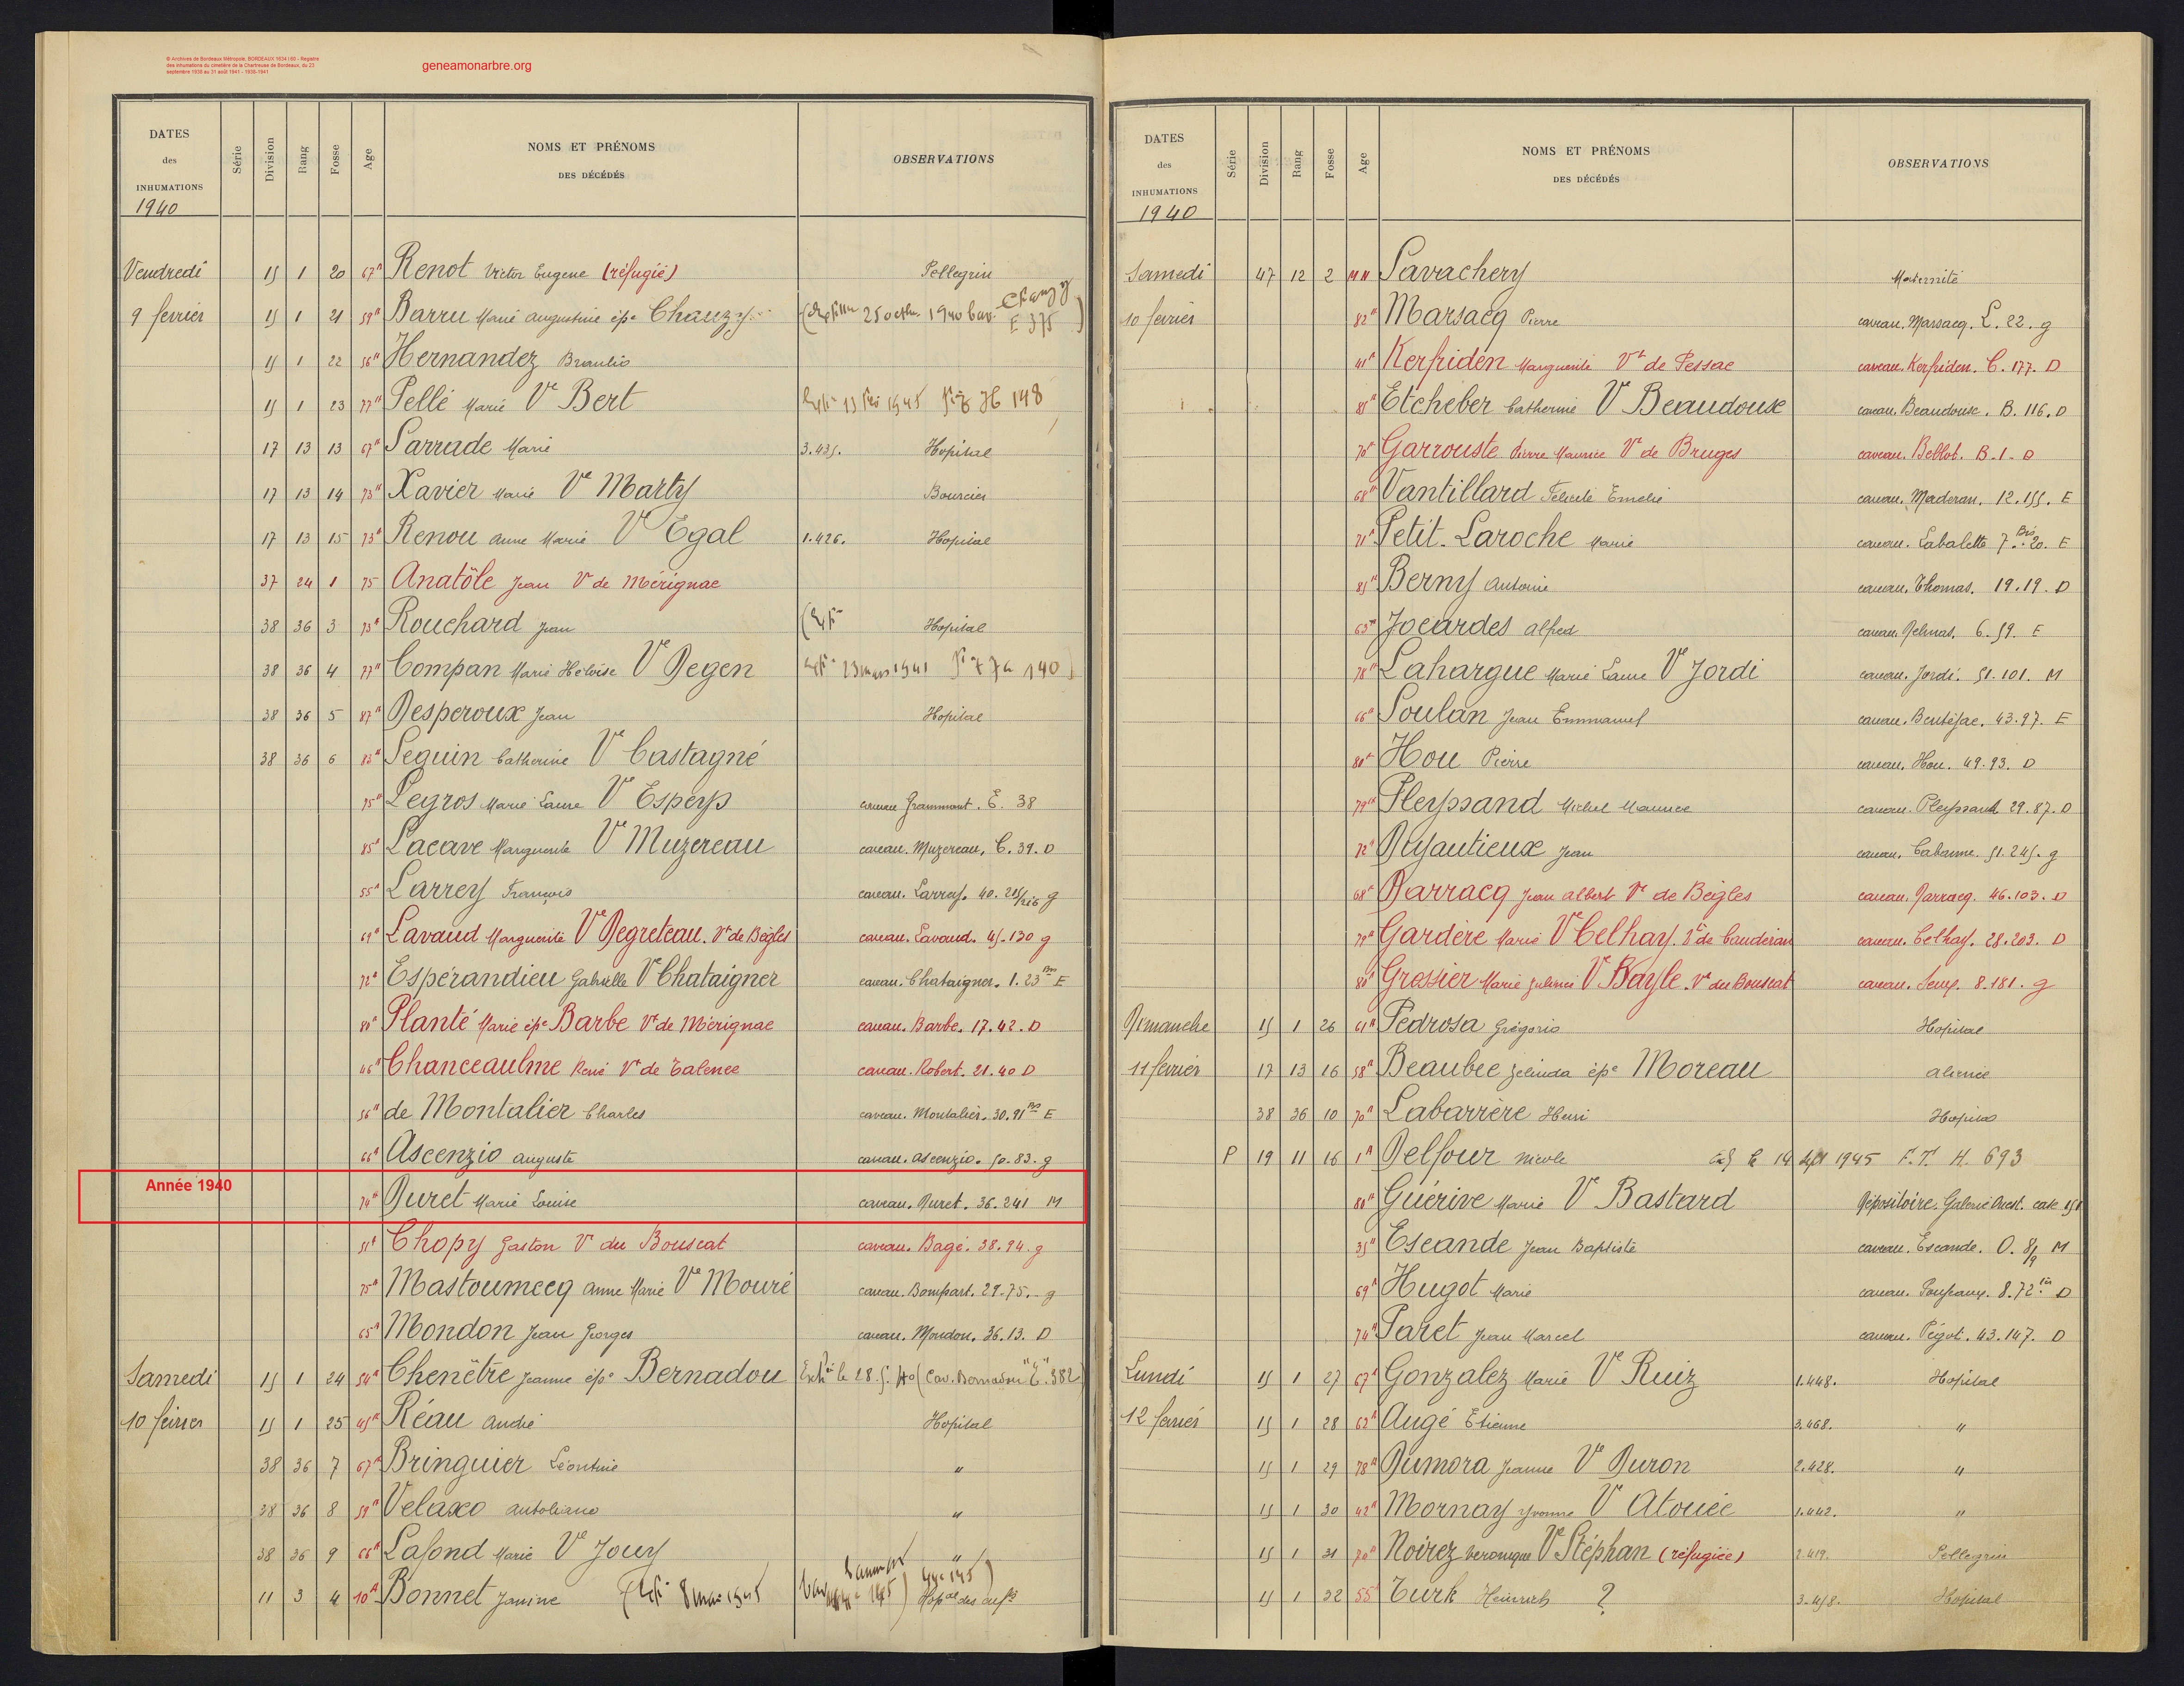 © Archives de Bordeaux Métropole, BORDEAUX 1634 I 66 - Registre
des inhumations du cimetière de la Chartreuse de Bordeaux, du 23
septembre 1938 au 31 août 1941 - 1938-1941
geneamonarbre.org
DATES des INHUMATIONS Série Division Rang Fosse Age NOMS ET PRÉNOMS DES DÉCÉDÉS OBSERVATIONS
1940
Vendredi 15 1 20 67a Renot Victor Eugene (réfugié) Pellegrin
9 fevrier 15 1 21 59a Barru Marie Augustine épe Chauzy 25 octbre 1940 E 375
15 1 22 56a Hernandez Braulio
15 1 23 77a Pellé Marie Ve Bert 1945 148
17 13 13 67a Sarrade Marie 3.435. Hopital
17 13 14 73a Xavier Marie Ve Marty Bourcier
17 13 15 73a Renou Anne Marie Ve Egal 1.426. Hopital
37 24 1 75 Anatôle Jean Vt de Mérignac
38 36 3 73a Rouchard Jean Hopital
38 36 4 77a Compan Marie Héloïse Ve Degen 23 mars 1941 140
38 36 5 87a Desperoux Jean Hopital
38 36 6 83a Seguin Catherine Ve Castagné
75a Leyros Marie Laure Ve Esperp caveau Grammont. E. 38
85a Lacave Marguerite Ve Muzereau caveau. Muzereau. C. 39. D
55a Larrey François caveau. Larrey. 40. 215/216 g
69a Lavaud Marguerite Ve Degreteau. Vt de Bègles caveau. Lavaud. 45. 130 g
72a Espérandieu Gabrielle Ve Chataigner caveau. Chataigner. 1. 23 Bis E
80a Planté Marie épe Barbe Vt de Mérignac caveau. Barbe. 17. 42. D
46a Chanceaulme René Vt de Talence caveau. Robert. 21. 40 D
56a de Montalier Charles caveau. Montalier. 30. 91 Bis E
66a Ascenzio Auguste caveau. Ascenzio. 50. 83. g
Année 1940
74a Duret Marie Louise caveau. Duret. 36. 241 M
51a Chopy Gaston Vt du Bouscat caveau. Bagé. 38. 94. g
75a Mastoumecq Anne Marie Ve Mouré caveau. Bompart. 29. 75. g
65a Mondon Jean Georges caveau. Mondon. 36. 13. D
Samedi 15 1 24 54a Chenêtre Jeanne épe Bernadou le 28. 5. 40 (Cav. Bernadou "E". 382)
10 fevrier 15 1 25 45a Réau André Hopital
38 36 7 67a Bringuier Léontine "
38 36 8 59a Velaxo "
38 36 9 66a Lafond Marie Ve Jouy "
11 3 4 10a Bonnet Janine 8 mai 1945 145 Hopal des enfts
DATES des INHUMATIONS Série Division Rang Fosse Age NOMS ET PRÉNOMS DES DÉCÉDÉS OBSERVATIONS
1940
Samedi 47 12 2 MN Savachery Maternité
10 fevrier 82a Marsacq Pierre caveau. Marsacq. L. 22. g
41a Kerfriden Marguerite Vt de Pessac caveau. Kerfriden. C. 177. D
85a Etcheber Catherine Ve Beaudouse caveau. Beaudouse. B. 116. D
70a Garrouste Pierre Maurice Vt de Bruges caveau. Bellot. B. 1. D
68a Vantillard Félicité Emelie caveau. Maderan. 12. 155. E
71a Petit-Laroche Marie caveau. Labalette 7 Bis. 20. E
85a Berny Antoine caveau. Thomas. 19. 19. D
63a Jocardes Alfred caveau. Delmas. 6. 59. E
78a Lahargue Marie Laure Ve Jordi caveau. Jordi. 51. 101. M
66a Soulan Jean Emmanuel caveau. Bentéjac. 43. 97. E
80a Hou Pierre caveau. Hou. 49. 93. D
79a Pleyssand Michel Maurice caveau. Pleyssand 29. 87. D
72a Dujautieux Jean caveau. Cabanne. 51. 245. g
68a Darracq Jean Albert Vt de Bègles caveau. Darracq. 46. 103. D
79a Gardère Marie Ve Celhay. Vt de Caudéran caveau. Celhay. 28. 203. D
80a Grossier Marie Ve Bayle. Vt du Bouscat caveau. 8. 181. g
Dimanche 15 1 26 61a Pedrosa Grégorio Hopital
11 fevrier 17 13 16 58a Beaubee Zelinda épe Moreau Aliénée
38 36 10 70a Labarrère Henri Hopital
P 19 11 16 1a Delfour Nicole le 14 1945 F. T. H. 693
80a Guérive Marie Ve Bastard Dépositoire. Galerie Ouest. case 151
35a Escande Jean Baptiste caveau. Escande. O. 8/9 M
69a Hugot Marie caveau. 8. 72 D
74a Paret Jean Marcel caveau. Pégot. 43. 147. D
Lundi 15 1 27 67a Gonzalez Marie Ve Ruiz 1.448. Hopital
12 fevrier 15 1 28 62a Augé Etienne 3.468. "
15 1 29 78a Dumora Jeanne Ve Duron 2.428. "
15 1 30 42a Mornay Yvonne Ve Atouée 1.442. "
15 1 31 70a Noirez Veronique Ve Stéphan (réfugiée) 2.419. Pellegrin
15 1 32 55a Turk Heinrich ? 3.458. Hopital